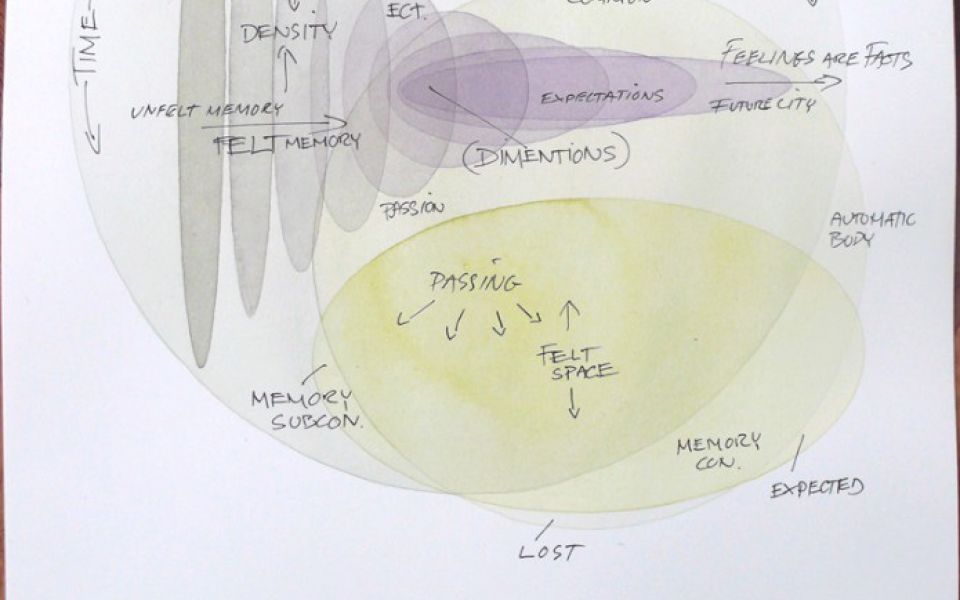 ECT.
TIME
DENSITY
FEELINGS ARE FACTS
EXPECTATIONS
FUTURE CITY
UNFELT MEMORY
FELT MEMORY
(DIMENTIONS)
PASSION
AUTOMATIC
BODY
PASSING
FELT
SPACE
MEMORY
SUBCON.
MEMORY
CON.
EXPECTED
LOST